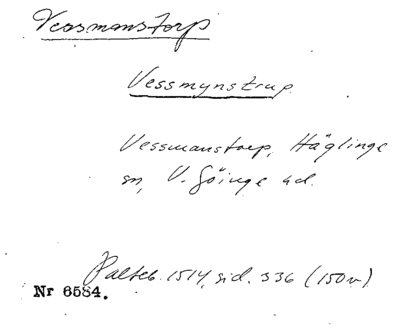 Vessmanstorp
Vessmynstrup
Vessmanstorp, Häglinge
sn, V. Göinge hd.
Palteb. 1514, sid. 336 (150v)
Nr 6584.